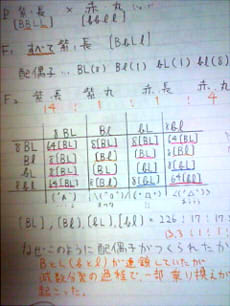 P 紫・長 × 赤・丸
[BBLL] [bbll]
F₁ すべて紫・長 [BbLl]
配偶子… BL(8) Bl(1) bL(1) bl(8)
F₂ 紫長 紫丸 赤長 赤丸
8BL Bl bL 8bl
8BL 64[BL] 8[BL] 8[BL] 64[BL]
Bl 8[BL] [Bl] [BL] 8[Bl]
bL 8[BL] [BL] [bL] 8[bL]
8bl 64[BL] 8[Bl] 8[bL] 64[bl]
[BL], [Bl], [bL], [bl] = 226 : 17 : 17 :
13.3 : 1 : 1 :
なぜこのように配偶子がつくられたか
BとL(bとl)が連鎖していたが
減数分裂の過程で、一部乗り換えが
起こった。